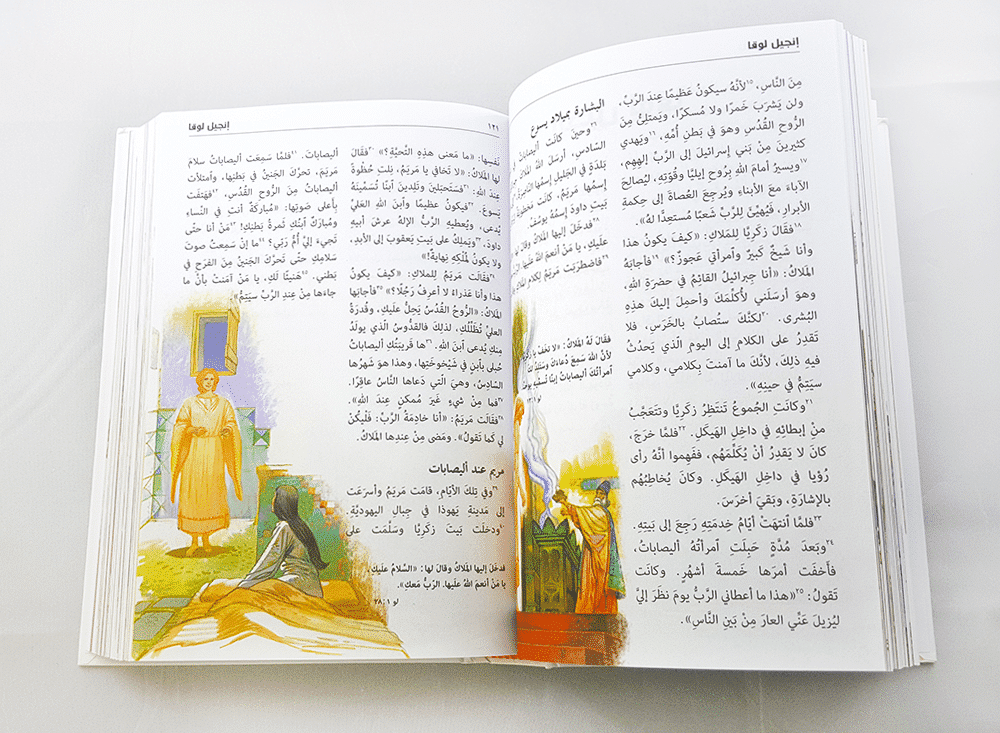 إنجيل لوقا
مِنَ النَّاسِ، ١٥لأنَّهُ سيكونُ عَظيمًا عِندَ الرَّبِّ.
ولن يَشرَبَ خَمرًا ولا مُسكرًا، ويَمتلِئُ مِنَ
الرُّوحِ القُدُسِ وهوَ في بَطنِ أُمِّهِ. ١٦ويَهدي
كثيرينَ مِنْ بَني إسرائيلَ إلى الرَّبِّ إلهِهِم،
١٧ويسيرُ أمامَ اللهِ بِروحِ إيليَّا وقُوَّتِهِ، ليُصالِحَ
الآباءَ معَ الأبناءِ ويُرجِعَ العُصاةَ إلى حِكمةِ
الأبرارِ، فيُهيِّئَ للرَّبِّ شَعبًا مُستعِدًّا لهُ».
١٨فقالَ زكَرِيَّا للمَلاكِ: «كيفَ يكونُ هذا
وأنا شَيخٌ كَبيرٌ وٱمرأتي عَجوزٌ؟» ١٩فأجابَهُ
المَلاكُ: «أنا جِبرائيلُ القائِمُ في حضرَةِ اللهِ،
وهوَ أرسَلَني لأُكَلِّمَكَ وأحمِلَ إليكَ هذِهِ
البُشرى. ٢٠لكنَّكَ ستُصابُ بالخَرَسِ، فلا
تَقدِرُ على الكلامِ إلى اليومِ الّذي يَحدُثُ
فيهِ ذلِكَ، لأنَّكَ ما آمنتَ بِكلامي، وكلامي
سيَتِمُّ في حينِهِ».
٢١وكانَتِ الجُموعُ تَنتَظِرُ زكَرِيَّا وتتَعَجَّبُ
منْ إبطائِهِ في داخِلِ الهَيكَلِ. ٢٢فلمَّا خرَجَ،
كانَ لا يَقدِرُ أنْ يُكَلِّمَهُم، ففَهِموا أنَّهُ رأى
رُؤيا في داخِلِ الهَيكَلِ. وكانَ يُخاطِبُهُم
بالإشارَةِ، وبَقيَ أخرَسَ.
٢٣فلمَّا ٱنتَهَتْ أيَّامُ خِدمَتِهِ رَجَعَ إلى بَيتِهِ.
٢٤وبَعدَ مُدَّةٍ حَبِلَتِ ٱمرأتُهُ أليصاباتُ،
فأخفَت أمرَها خَمسةَ أشهُرٍ. وكانَت
تَقولُ: ٢٥«هذا ما أعطاني الرَّبُّ يومَ نظَرَ إليَّ
ليُزيلَ عَنِّي العارَ مِنْ بَينِ النَّاسِ».
البشارة بميلاد يسوع
٢٦وحينَ كانَت أليصاباتُ في
السادِسِ، أرسَلَ اللهُ المَلاكَ
بَلدَةٍ في الجَليلِ ٱسمُها النَّاصِرَةُ
ٱسمُها مَريَمُ، كانَت مَخطوبَةً
بَيتِ داودَ ٱسمُهُ يوسُفُ.
٢٨فدخَلَ إليها المَلاكُ وقالَ
عَليكِ، يا مَنْ أنعمَ اللهُ عليها.
٢٩فاضطَرَبَت مَريَمُ لِكلامِ المَلاكِ
فقالَ لَهُ المَلاكُ: «لا تخَفْ يا زكَرِيَّا
لأنَّ اللهَ سَمِعَ دُعاءَكَ وستَلِدُ لكَ
ٱمرأتُكَ أليصاباتُ ٱبنًا تُسمِّيهِ يوحنَّا
إنجيل لوقا
نَفسِها: «ما مَعنى هذِهِ التَّحِيَّةِ؟» ٣٠فقالَ
لها المَلاكُ: «لا تَخافي يا مَريَمُ، نِلتِ حُظوةً
عِندَ اللهِ. ٣١فسَتَحبَلينَ وتَلِدينَ ٱبنًا تُسَمِّينَهُ
يَسوعَ. ٣٢فيكونُ عظيمًا وٱبنَ اللهِ العَليِّ
يُدعى، ويُعطيهِ الرَّبُّ الإلهُ عرشَ أبيهِ
داودَ، ٣٣ويَملِكُ على بَيتِ يَعقوبَ إلى الأبدِ،
ولا يكونُ لمُلْكِهِ نِهايةٌ!»
٣٤فقالَت مَريَمُ للمَلاكِ: «كيفَ يكونُ
هذا وأنا عَذراءُ لا أعرِفُ رَجُلًا؟» ٣٥فأجابَها
المَلاكُ: «الرُّوحُ القُدُسُ يَحِلُّ علَيكِ، وقُدرَةُ
العليِّ تُظَلِّلُكِ، لذلِكَ فالقدُّوسُ الّذي يولَدُ
مِنكِ يُدعى ٱبنَ اللهِ. ٣٦ها قَريبَتُكِ أليصاباتُ
حُبلى بٱبنٍ في شَيْخوخَتِها، وهذا هوَ شَهرُها
السَّادِسُ، وهيَ الّتي دَعاها النَّاسُ عاقِرًا.
٣٧فما مِنْ شيءٍ غَيرُ مُمكنٍ عِندَ اللهِ».
٣٨فقالَت مَريَمُ: «أنا خادِمَةُ الرَّبِّ: فَلْيَكُنْ
لي كما تَقولُ». ومَضى مِنْ عِندِها المَلاكُ.
مريم عند أليصابات
٣٩وفي تِلكَ الأيَّامِ، قامَت مَريَمُ وأسرَعَت
إلى مَدينةِ يَهوذا في جِبالِ اليَهوديَّةِ.
٤٠ودخَلَت بَيتَ زكَرِيَّا وسَلَّمَت على
أليصاباتَ. ٤١فلمَّا سَمِعَت أليصاباتُ سلامَ
مَريَمَ، تحَرَّكَ الجَنينُ في بَطنِها، وٱمتَلأت
أليصاباتُ مِنَ الرُّوحِ القُدُسِ، ٤٢فهَتَفَت
بأعلى صَوتِها: «مُبارَكَةٌ أنتِ في النِّساءِ
ومُبارَكٌ ٱبنُكِ ثَمرَةُ بَطنِكِ! ٤٣مَنْ أنا حتَّى
تَجيءَ إليَّ أُمُّ رَبِّي؟ ٤٤ما إنْ سَمِعتُ صوتَ
سَلامِكِ حتَّى تَحرَّكَ الجَنينُ مِنَ الفَرَحِ في
بَطني. ٤٥هَنيئًا لَكِ، يا مَنْ آمَنَتْ بأنَّ ما
جاءَها مِنْ عِندِ الرَّبِّ سيَتِمُّ!»
فدخَلَ إليها المَلاكُ وقالَ لها: «السَّلامُ علَيكِ،
يا مَنْ أنعمَ اللهُ علَيها. الرَّبُّ مَعكِ».